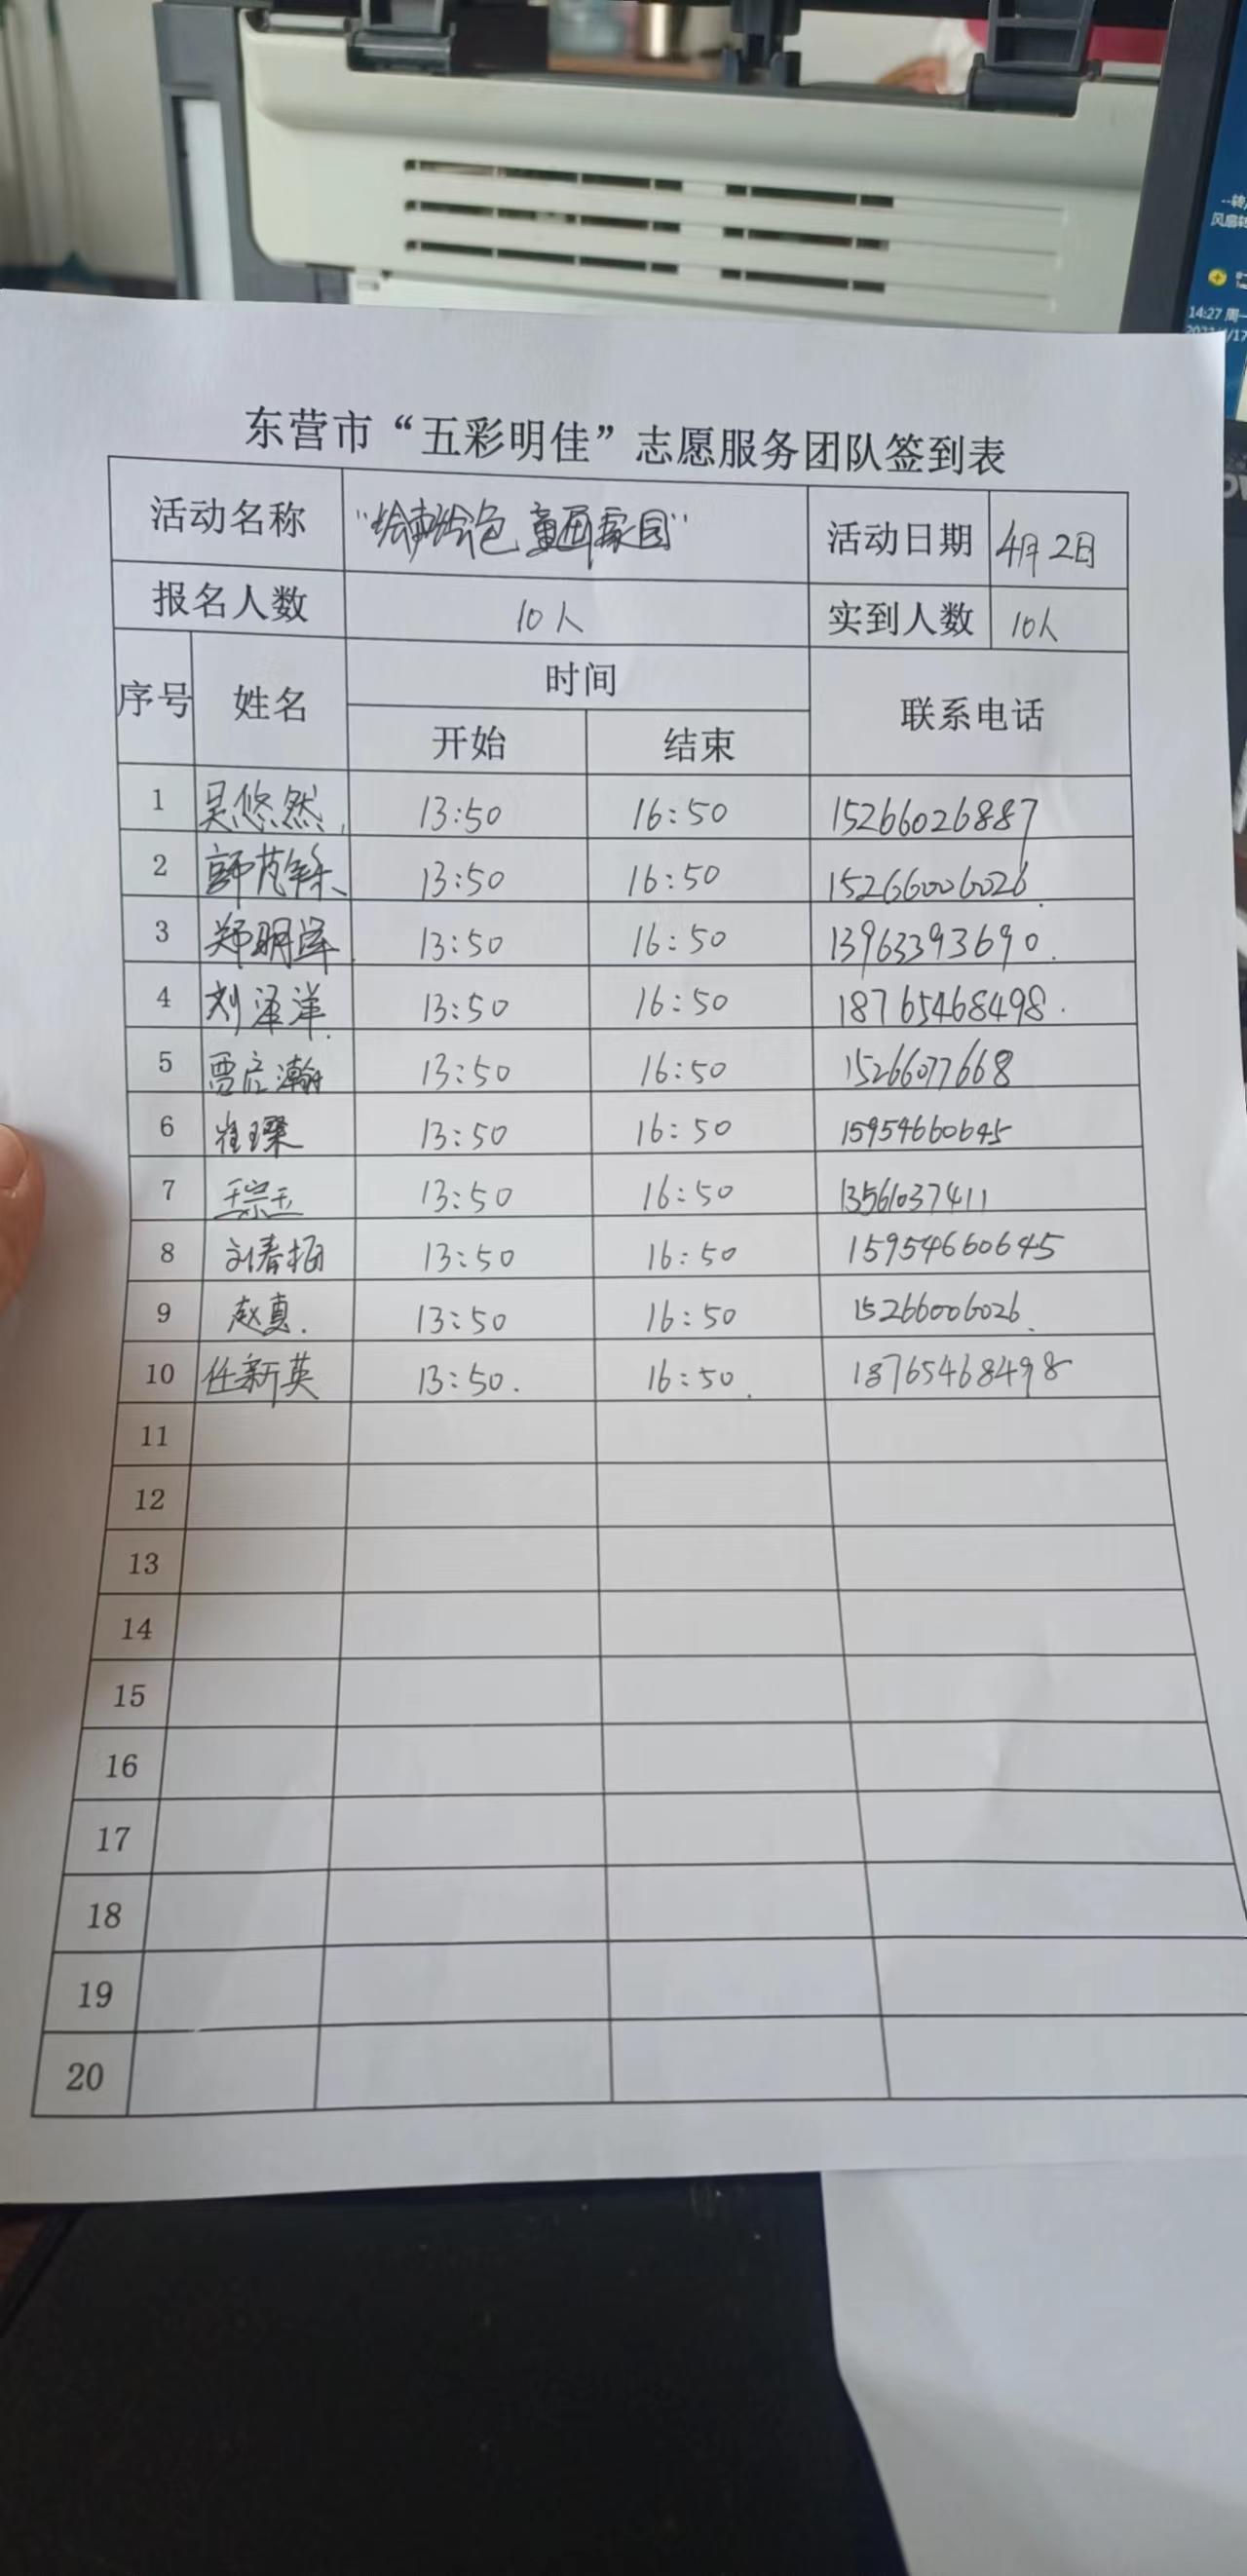 --转
风扇转
14:27 周一
东营市“五彩明佳”志愿服务团队签到表
活动名称 “绘声绘色 童画家园” 活动日期 4月2日
报名人数 10人 实到人数 10人
序号 姓名 时间 联系电话
开始 结束
1 吴悠然 13:50 16:50 15266026887
2 13:50 16:50 15266006026
3 郑明泽 13:50 16:50 13963393690
4 刘泽洋 13:50 16:50 18765468498
5 贾启瀚 13:50 16:50 15266077668
6 崔璨 13:50 16:50 15954660645
7 王宗玉 13:50 16:50 13561037411
8 刘春梅 13:50 16:50 15954660645
9 赵真 13:50 16:50 15266006026
10 任新英 13:50 16:50 18765468498
11
12
13
14
15
16
17
18
19
20